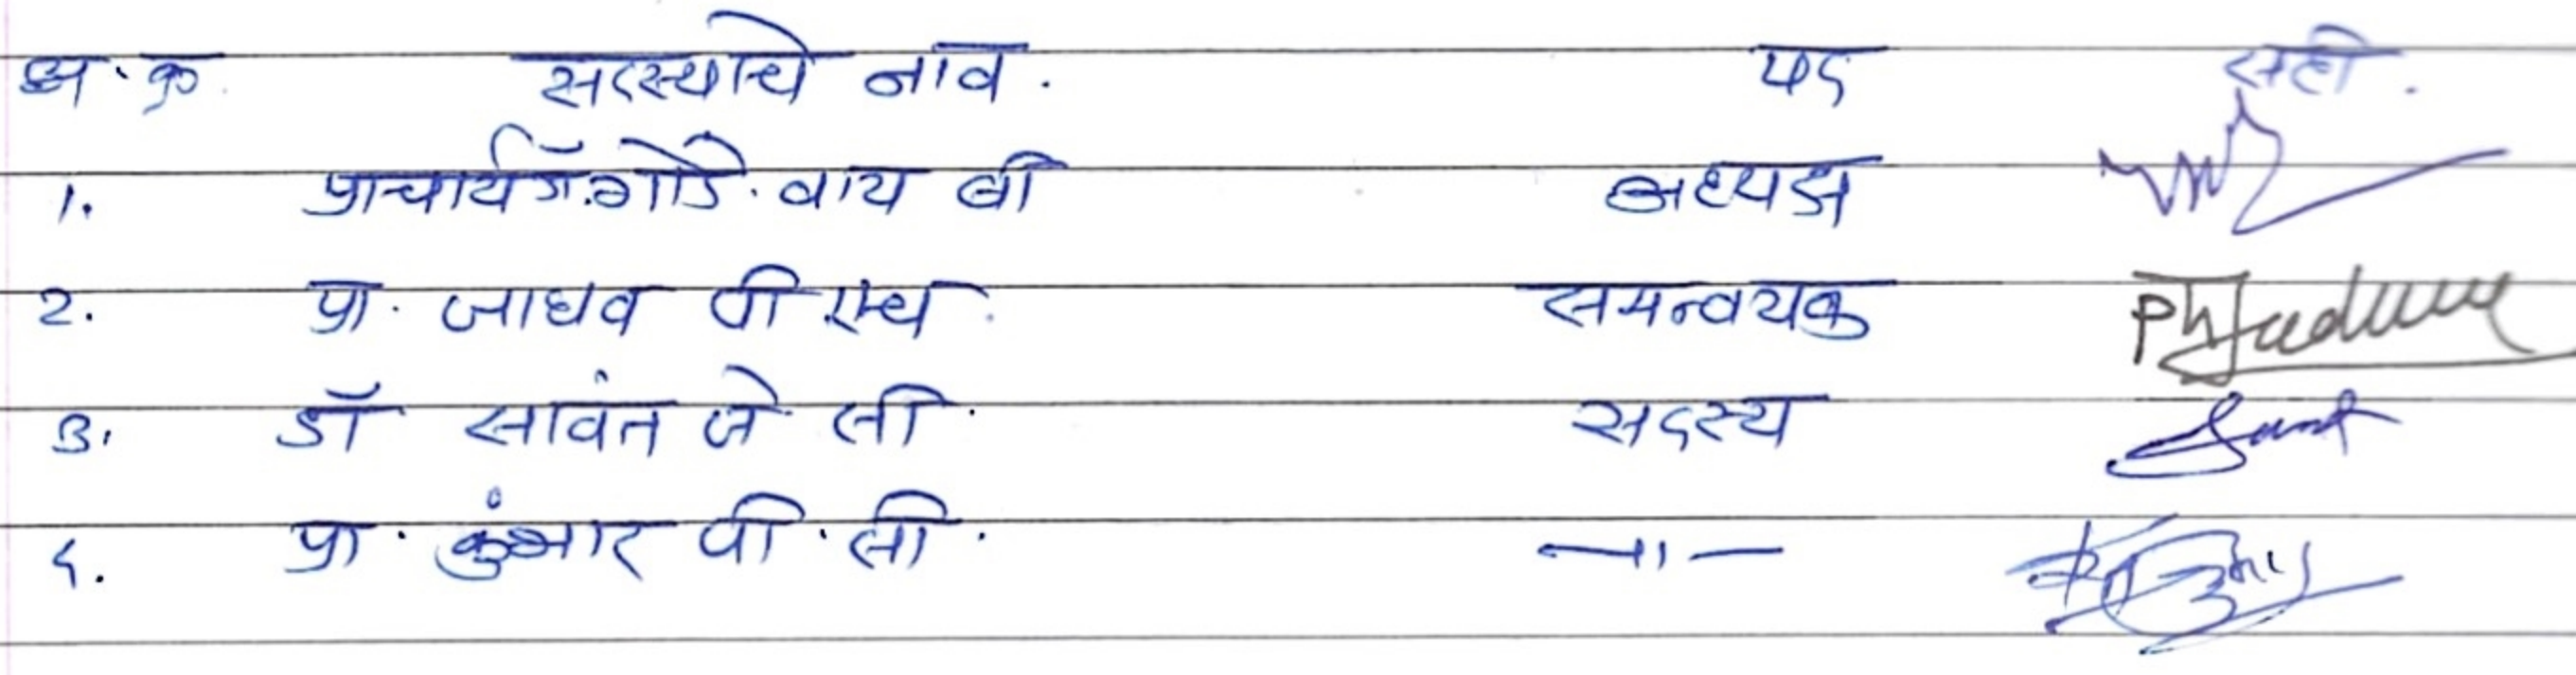 अ.क्र. सदस्याचे नाव. पद सही.
1. प्राचार्य डॉ. गोंडे. वाय बी अध्यक्ष
2. प्रा. जाधव पी एच. समन्वयक PHJadhav
3. डॉ सावंत जे सी. सदस्य
4. प्रा. कुंभार पी. सी. —॥—